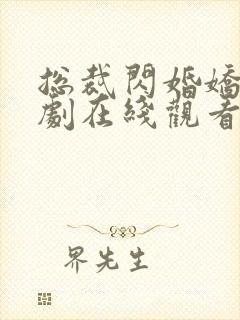 总裁閃婚嬌
劇在綫觀看
界先生